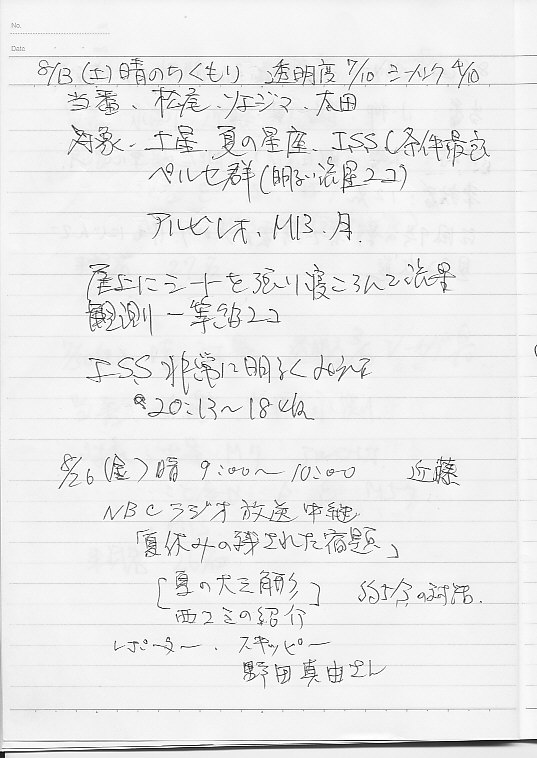 No.
Date
8/13(土)晴のちくもり 透明度7/10 シーイング4/10
当番、松尾、ソエジマ、太田
対象、土星、夏の星座、ISS(条件最高
ペルセ群(明るい流星2コ)
アルビレオ、M13、月、
屋上にシートを張り寝ころんで流星
観測 一等級2コ
ISS非常に明るくみえた
20:13〜18
8/26(金)晴 9:00〜10:00 近藤
NBCラジオ放送中継
「夏休みの残された宿題」
[夏の大三角形] 約5分の対話.
西コミの紹介
レポーター、スキッピー
野田真由さん